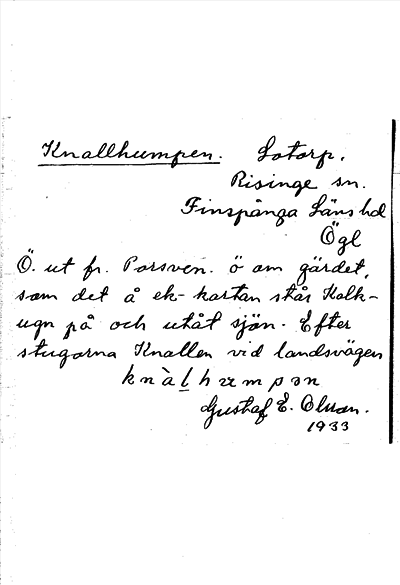 Knallhumpen. Lotorp.
Risinge sn.
Finspånga Läns hd
Ögl
Ö. ut fr. Porsven. ö om gärdet,
som det å ek-kartan står Kalk-
ugn på och utåt sjön. Efter
stugorna Knallen vid landsvägen
Gustaf E. Olsson.
1933